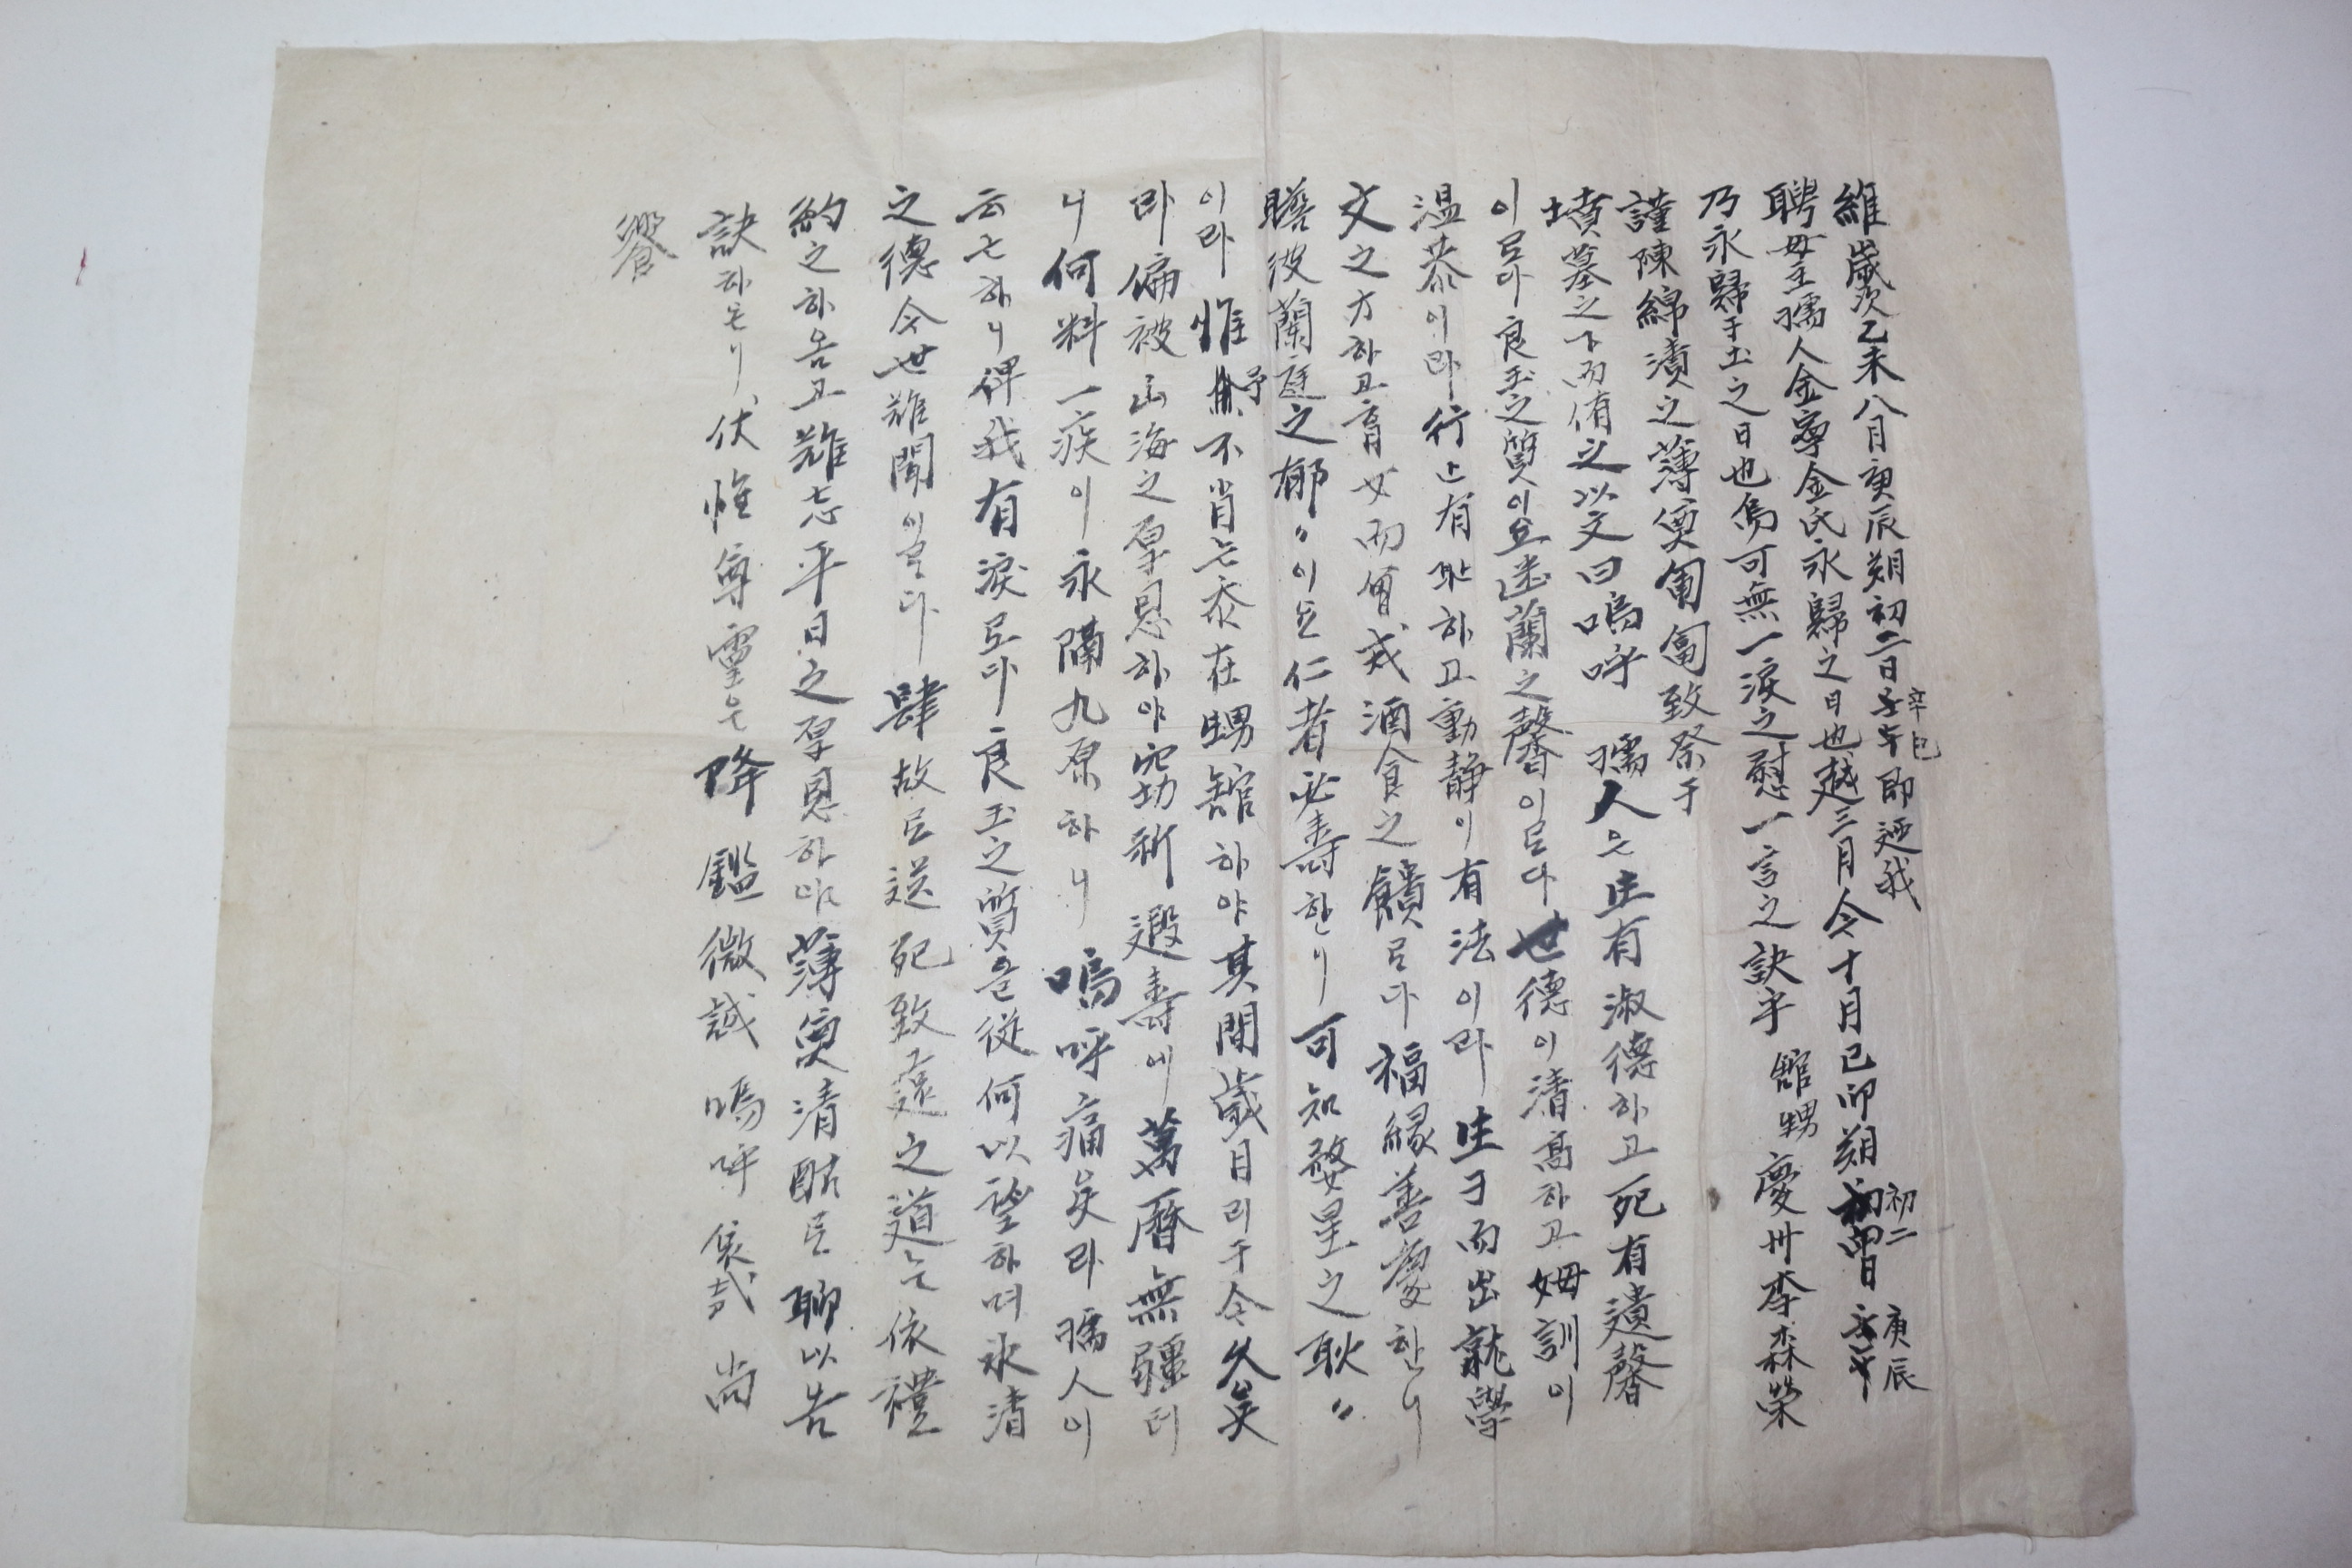 維歲次乙未八月庚辰朔初二日辛巳即迺我
聘母主孺人金寧金氏永歸之日也越三月今十月己卯朔初二日庚辰
乃永歸于土之日也焉可無一淚之慰一言之訣乎 舘甥慶州李森榮
謹陳綿漬之薄奠匍匐致祭于
墳墓之下而侑之以文曰嗚呼 孺人은生有淑德하고死有遺馨
이로다良玉之質이요蘭之馨이로다世德이清高하고姆訓이
温恭이라行止有耻하고動静이有法이라生子而出就學
文之方하고育女而曾戒酒食之饋로다福緣善慶한니
瞻彼蘭庭之郁〃이요仁者必壽한니可知婺星之耿〃
이라惟予不肖는忝在甥舘하야其間歲月리于今久矣
라偏被山海之厚恩하야窃祈遐壽에萬曆無疆터
니何料一疾이永隔九原하니嗚呼痛矣라孺人이
云亡하니俾我有淚로다良玉之質을從何以望하며氷清
之德今世難聞이로다肆故로送死致遠之道는依禮
約之하옵고難忘平日之厚恩하야薄奠清酤로聊以告
訣하온니伏惟尊靈은降鑑微誠嗚呼哀哉尚
饗